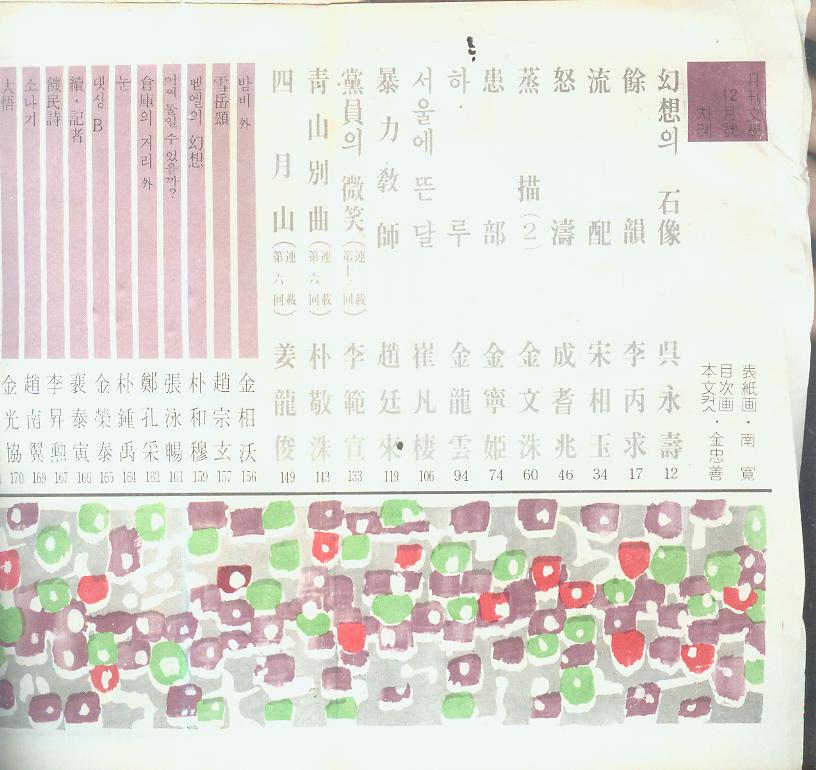 月刊文學
12月號
차례
表紙画・南寬
目次画
本文컷・金忠善
幻想의 石像 吳永壽 12
餘韻 李丙求 17
流配 宋相玉 34
怒濤 成耆兆 46
蒸描(2) 金文洙 60
患部 金寧姬 74
하루 金龍雲 94
서울에 뜬 달 崔凡棲 106
暴力敎師 趙廷來 119
黨員의 微笑(連載第十三回) 李範宣 133
靑山別曲(連載第六回) 朴敬洙 143
四月山(連載第六回) 姜龍俊 149
밤비 外 金相沃 156
雪岳頌 趙宗玄 157
벧엘의 幻想 朴和穆 159
어찌 둘일 수 있을까? 張泳暢 161
倉庫의 거리 外 鄭孔采 162
눈 朴鍾禹 164
댓싱 B 金榮泰 165
續・記者 裵泰寅 166
饑民詩 李昇勲 167
소나기 趙南翼 169
大悟 金光協 170